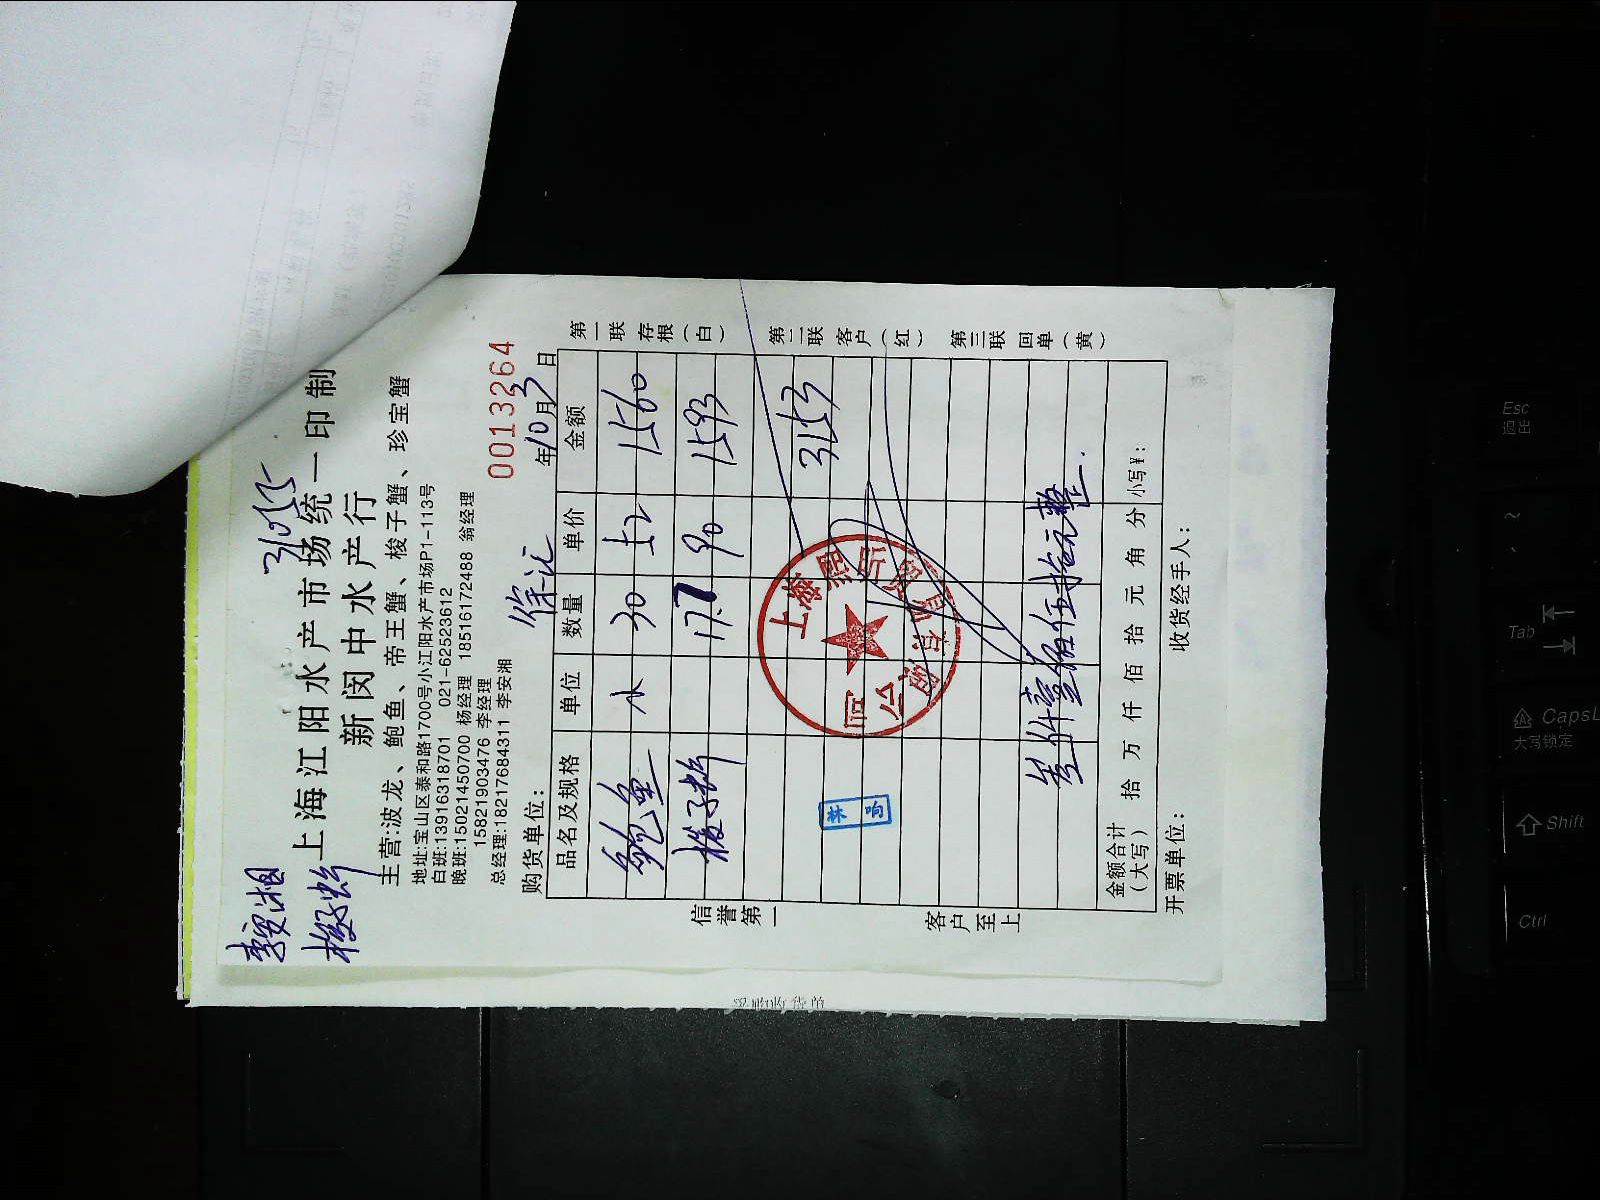 李安湘
梭子蟹
上海江阳水产市场统一印制
新闵中水产行
主营:波龙、鲍鱼、帝王蟹、梭子蟹、珍宝蟹
地址:宝山区泰和路1700号小江阳水产市场P1-113号
白班:13916318701 021-62523612
晚班:15021450700 杨经理 18516172488 翁经理
15821903476 李经理
总经理:18217684311 李安湘
0013264
购货单位: 徐汇 年10月3日
品名及规格 单位 数量 单价 金额
鲍鱼 30 52 1560
梭子蟹 17.7 90 1593
3153
叁仟壹佰伍拾元整
金额合计(大写) 拾 万 仟 佰 拾 元 角 分 小写¥:
开票单位: 收货经手人:
信誉第一 客户至上
第一联 存根(白) 第二联 客户(红) 第三联 回单(黄)
Esc
Tab
CapsL
大写锁定
Shift
Ctrl